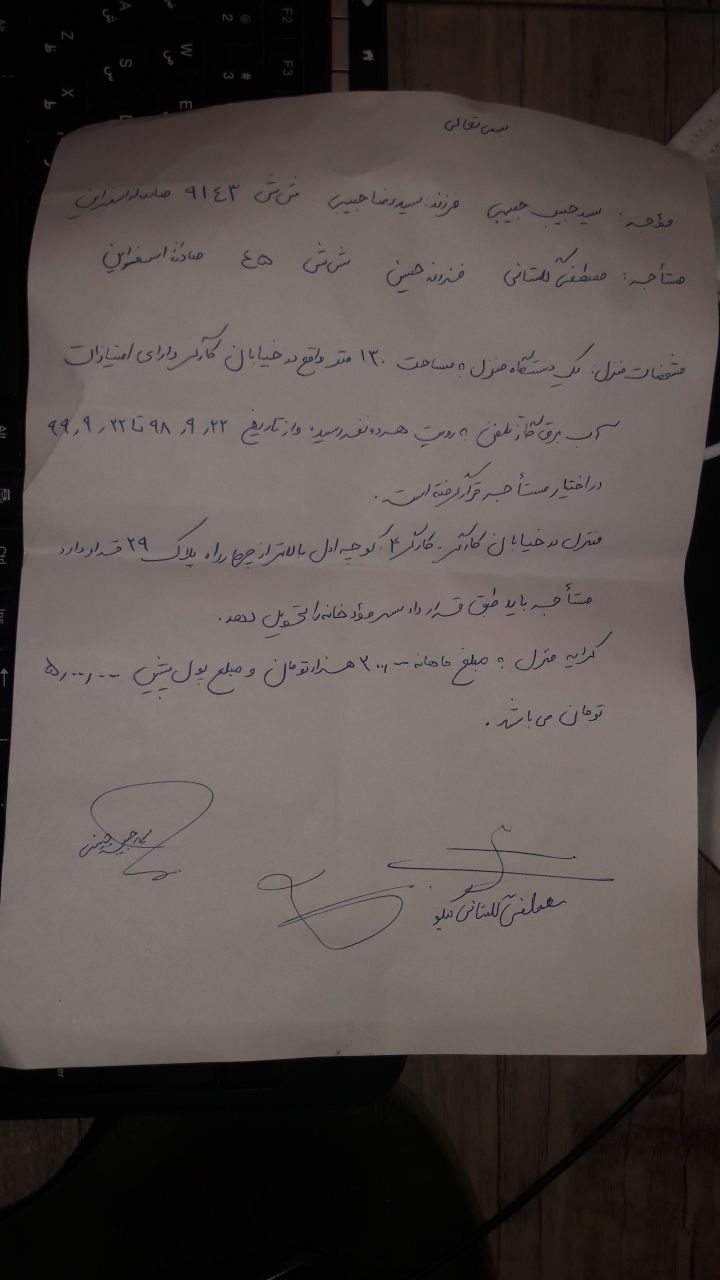 بسمه تعالی
مؤجر: سید حبیب حبیبی فرزند: سیدرضا حبیبی ش ش ۹۱۴۳ صادره از اسفراین
مستأجر: مصطفی گلستانی فرزند حسین ش ش ۴۵ صادره اسفراین
مشخصات منزل: یک دستگاه منزل به مساحت ۱۳۰ متر واقع در خیابان کارگر دارای امتیازات
آب برق گاز تلفن به رویت هر دو نفر رسیده و از تاریخ ۹۸٫۹٫۲۲ تا ۹۹٫۹٫۲۲
در اختیار مستأجر قرار گرفته است.
منزل در خیابان کارگر. کارگر ۴. کوچه اول بالاتر از چهارراه پلاک ۲۹ قرار دارد
مستأجر باید طبق قرارداد سر موعد خانه را تحویل دهد.
کرایه منزل به مبلغ ماهانه هزار تومان و مبلغ پول پیش
تومان می باشد.
مصطفی گلستانی
سید حبیب